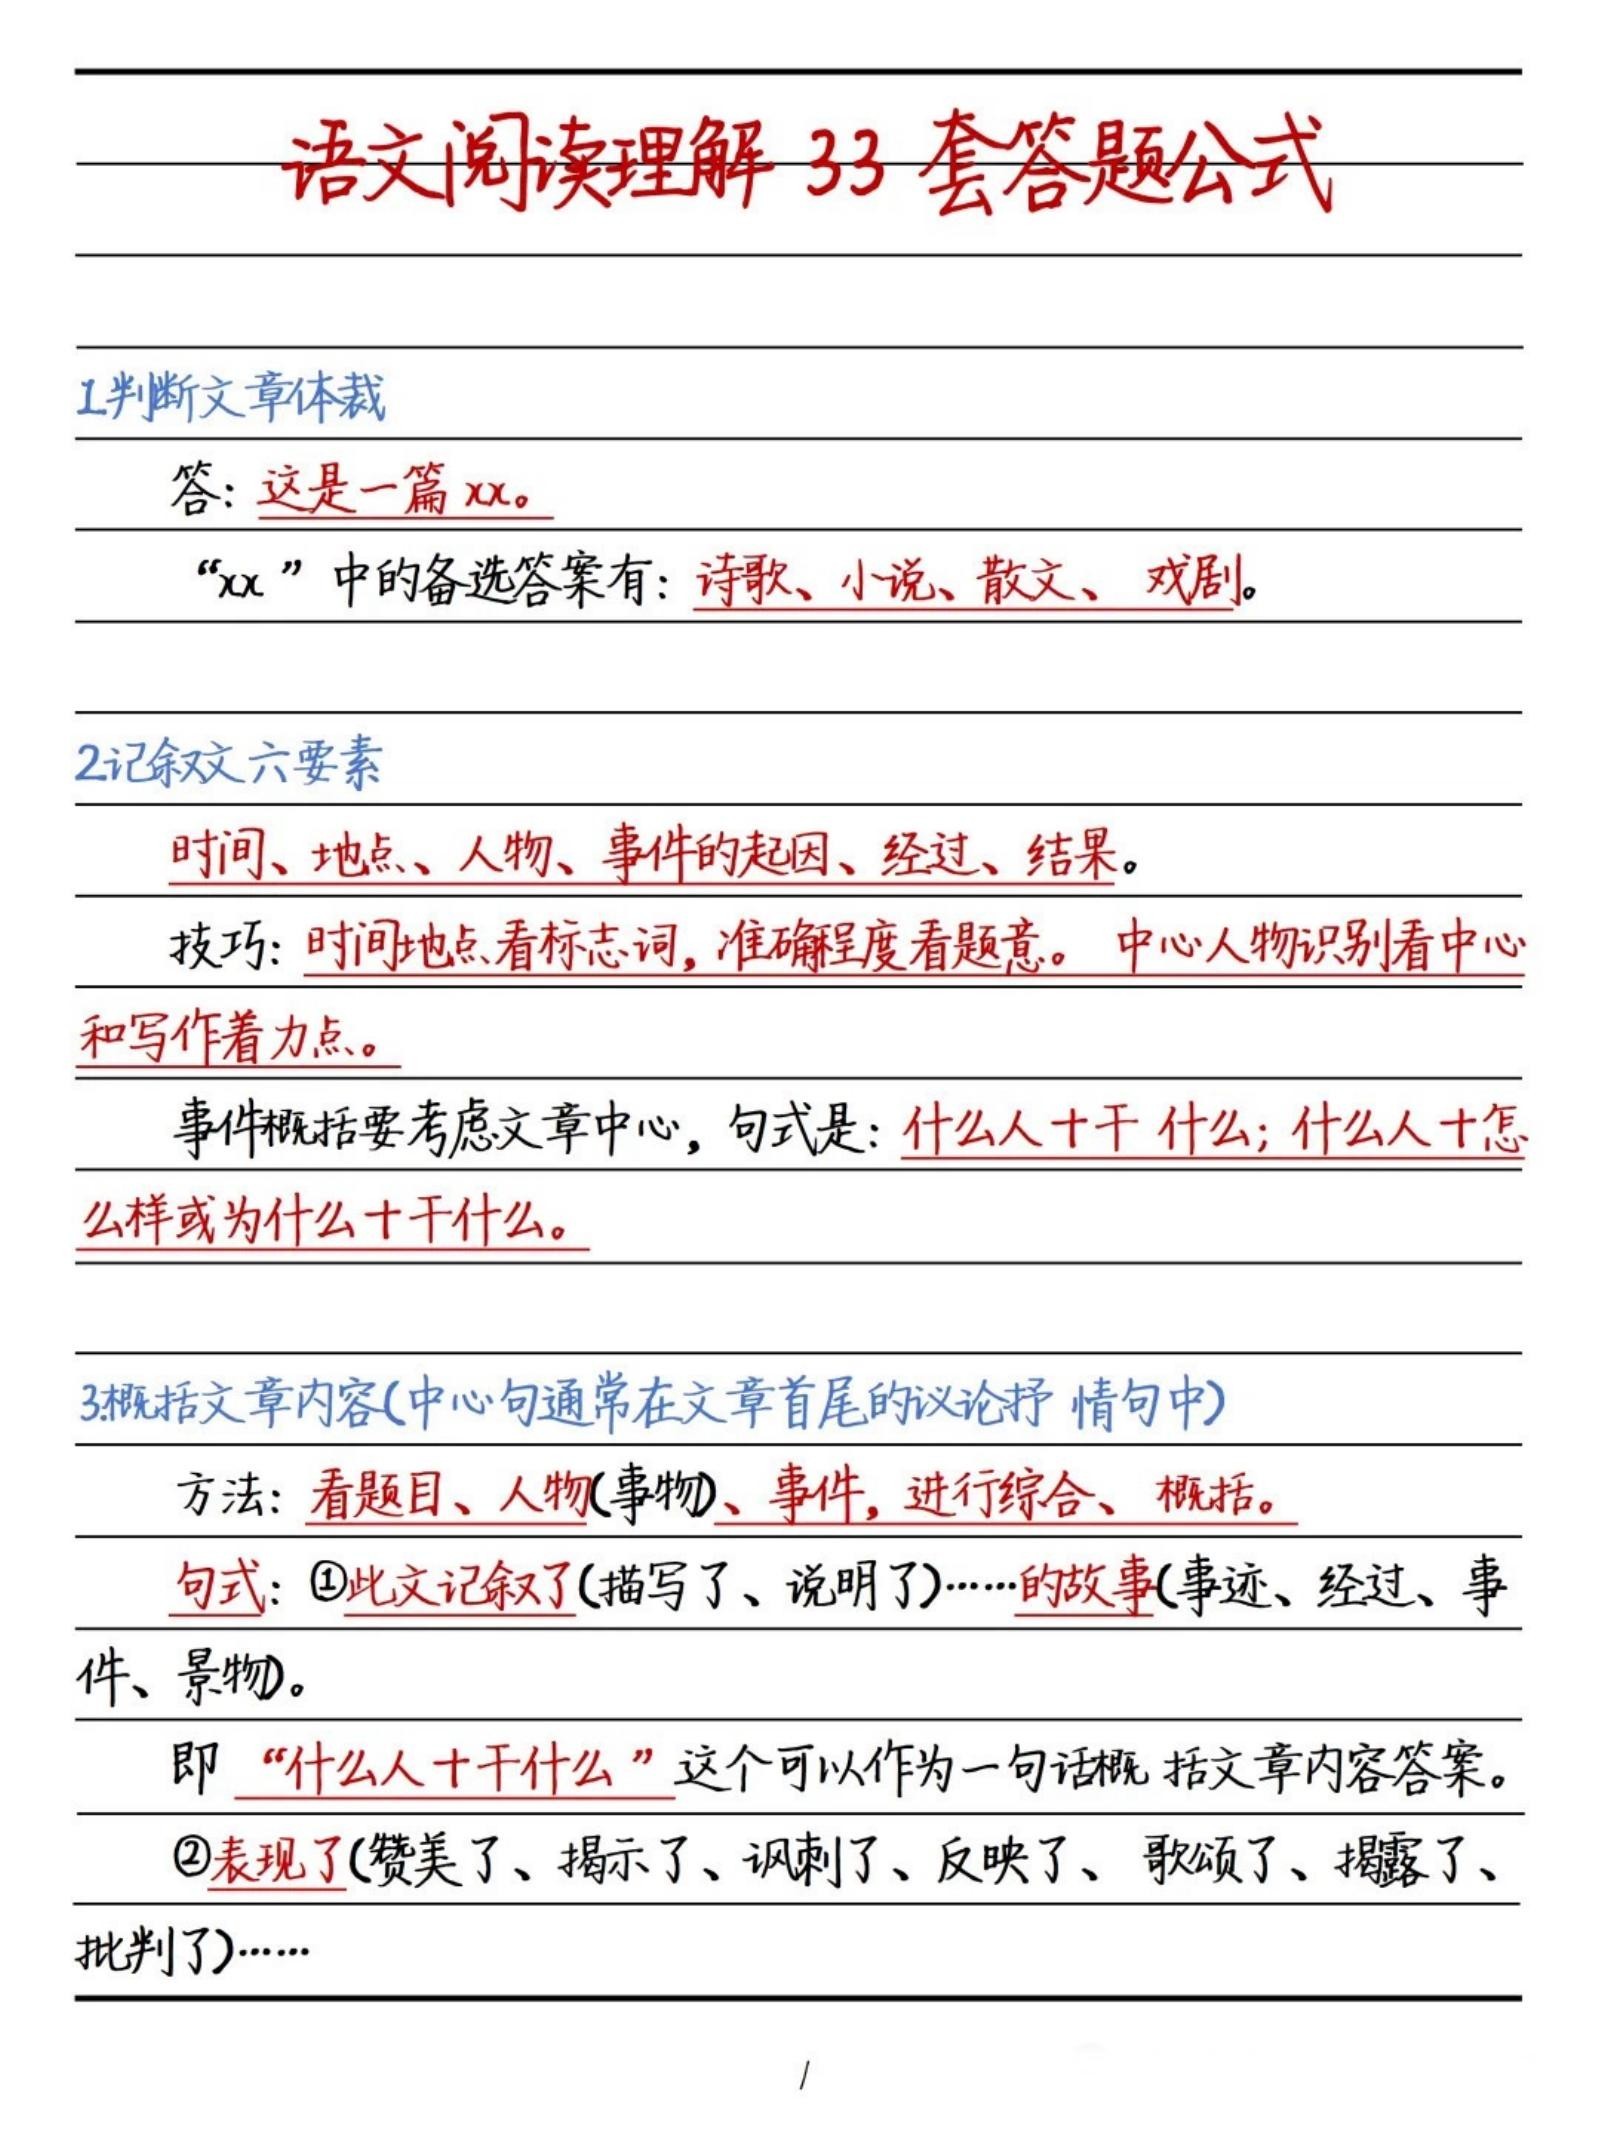 语文阅读理解 33 套答题公式
1.判断文章体裁
答：这是一篇 xx。
“xx ”中的备选答案有：诗歌、小说、散文、 戏剧。
2.记叙文六要素
时间、地点、人物、事件的起因、经过、结果。
技巧：时间地点看标志词，准确程度看题意。 中心人物识别看中心
和写作着力点。
事件概括要考虑文章中心，句式是：什么人十干 什么；什么人十怎
么样或为什么十干什么。
3.概括文章内容(中心句通常在文章首尾的议论抒 情句中)
方法：看题目、人物(事物)、事件，进行综合、 概括。
句式：①此文记叙了(描写了、说明了)……的故事(事迹、经过、事
件、景物)。
即 “什么人十干什么 ”这个可以作为一句话概 括文章内容答案。
②表现了(赞美了、揭示了、讽刺了、反映了、 歌颂了、揭露了、
批判了)……
1